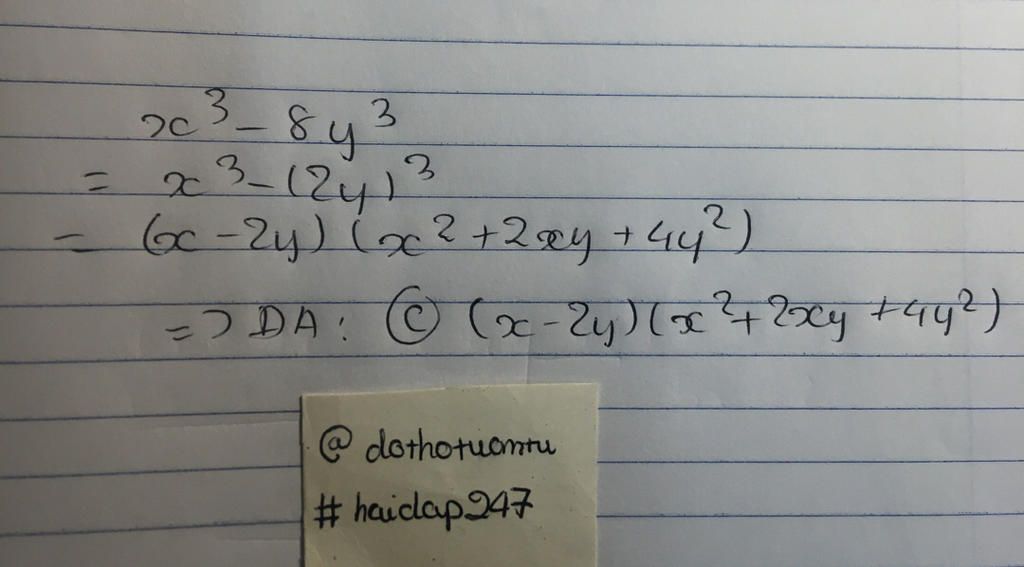 x³ - 8y³
= x³ - (2y)³
= (x - 2y) (x² + 2xy + 4y²)
=> DA: Ⓒ (x - 2y) (x² + 2xy + 4y²)
@ dothotuantu
# haidap247